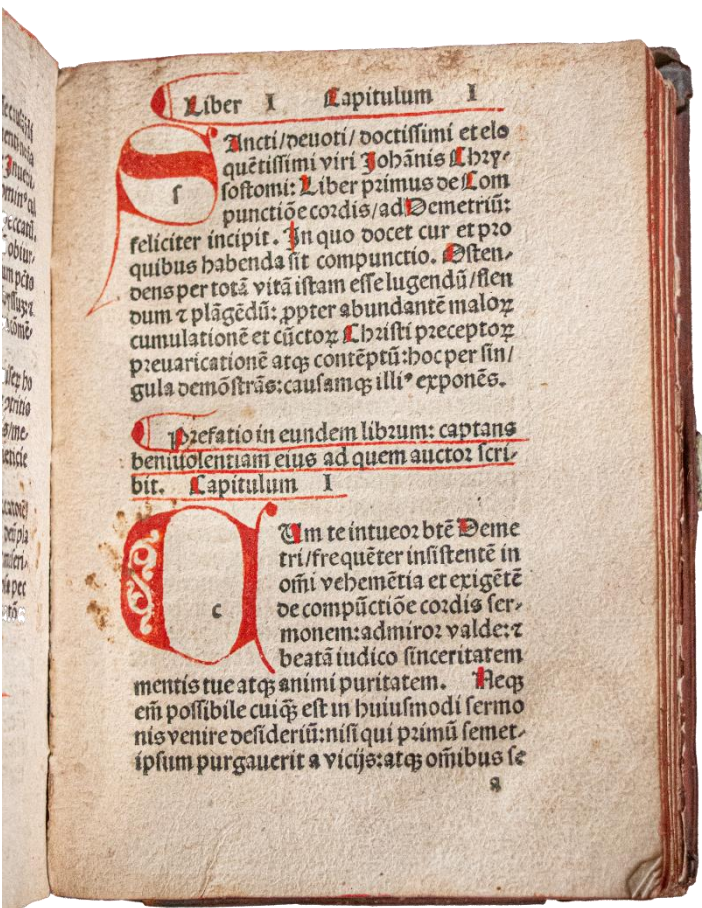 Liber I Capitulum I
SAncti/deuoti/doctissimi et elo
quētissimi viri Johānis Chry-
sostomi: Liber primus de Com
punctiōe cordis/ad Demetriū:
feliciter incipit. In quo docet cur et pro
quibus habenda sit compunctio. Osten-
dens per totā vitā istam esse lugendū/flen
dum ⁊ plāgēdū: ꝓpter abundantē maloꝝ
cumulationē et cūctoꝝ Christi preceptoꝝ
preuaricationē atqꝫ contēptū: hoc per sin/
gula demōstrās: causamqꝫ illiꝰ exponēs.
Prefatio in eundem librum: captans
beniuolentiam eius ad quem auctor scri-
bit. Capitulum I
CUm te intueor btē Deme
tri/frequēter insistentē in
om̄i vehemētia et exigētē
de compūctiōe cordis ser-
monem: admiror valde: ⁊
beatā iudico sinceritatem
mentis tue atqꝫ animi puritatem. Neqꝫ
em̄ possibile cuiqꝫ̄ est in huiusmodi sermo
nis venire desideriū: nisi qui primū semet-
ipsum purgauerit a vicijs: atqꝫ om̄ibus se
a